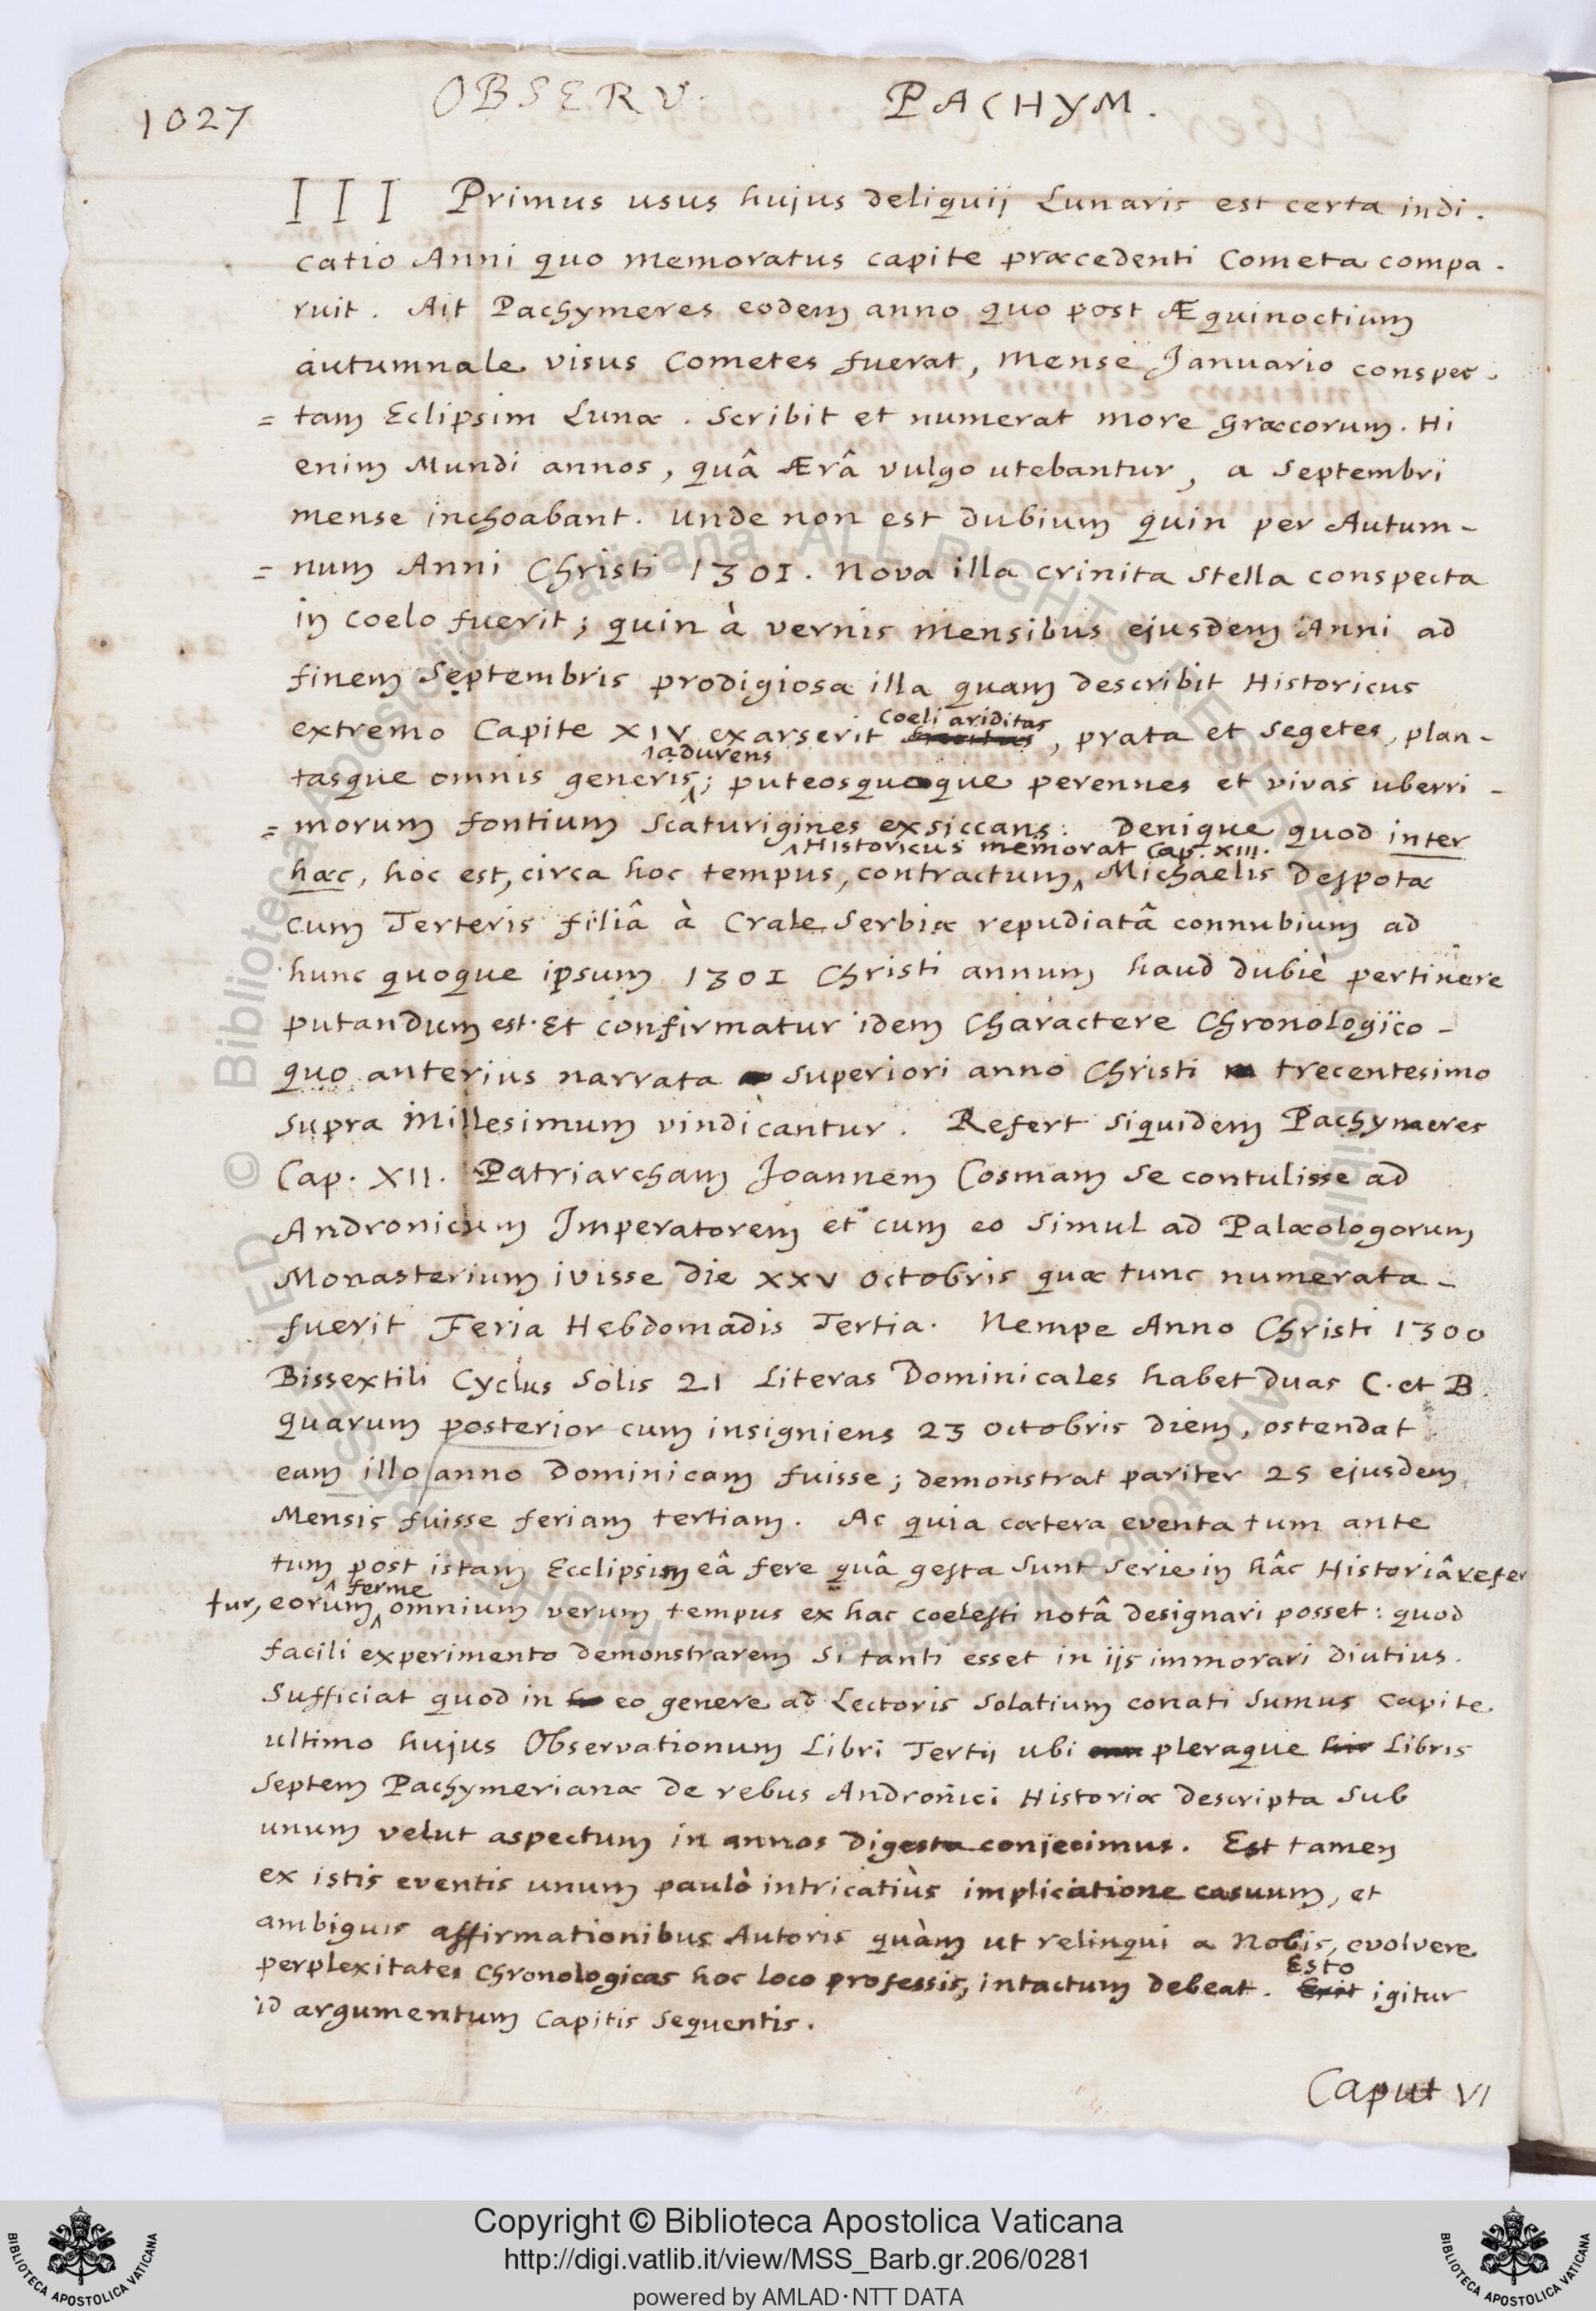 1027 OBSERV. PACHYM.
III Primus usus hujus deliquij Lunaris est certa indi-
catio Anni quo memoratus capite præcedenti Cometa compa-
ruit. Ait Pachymeres eodem anno quo post Æquinoctium
autumnale visus Cometes fuerat, Mense Januario conspec-
= tam Eclipsim Lunæ. Scribit et numerat more Græcorum. Hi
enim Mundi annos, quâ Ærâ vulgo utebantur, a Septembri
mense inchoabant. unde non est dubium quin per Autum-
= num Anni Christi 1301. Nova illa crinita Stella conspecta
in coelo fuerit; quin à vernis mensibus ejusdem Anni ad
finem Septembris prodigiosa illa quam describit Historicus
extremo Capite XIV exarserit coeli ariditas, prata et segetes, plan-
tasque omnis generis adurens; puteosque perennes et vivas uberri-
= morum fontium scaturigines exsiccans: Denique quod inter
hæc, hoc est, circa hoc tempus, contractum Historicus memorat Cap. XIII. Michaelis Despotæ
cum Terteris filiâ à Crale Serbiæ repudiatâ connubium ad
hunc quoque ipsum 1301 Christi annum haud dubiè pertinere
putandum est. Et confirmatur idem Charactere Chronologico
quo anterius narrata superiori anno Christi trecentesimo
supra Millesimum vindicantur. Refert siquidem Pachymeres
Cap. XII. Patriarcham Joannem Cosmam se contulisse ad
Andronicum Imperatorem et cum eo simul ad Palæologorum
Monasterium ivisse die XXV octobris quæ tunc numerata
fuerit Feria Hebdomadis Tertia. Nempe Anno Christi 1300
Bissextili Cyclus Solis 21 Literas Dominicales habet duas C. et B
quarum posterior cum insigniens 23 octobris diem, ostendat
eam illo anno Dominicam fuisse; demonstrat pariter 25 ejusdem
Mensis fuisse feriam tertiam. Ac quia cætera eventa tum ante
tum post istam Ecclipsim eâ fere quâ gesta sunt serie in hâc Historiâ refer
tur, eorum ferme omnium verum tempus ex hac coelesti notâ designari posset: quod
facili experimento demonstrarem si tanti esset in ijs immorari diutius.
Sufficiat quod in eo genere ad Lectoris solatium conati sumus capite
ultimo hujus Observationum Libri Tertij ubi pleraque Libris
Septem Pachymerianæ de rebus Andronici Historiæ descripta sub
unum velut aspectum in annos digesta conjecimus. Est tamen
ex istis eventis unum paulò intricatiùs implicatione casuum, et
ambiguis affirmationibus Autoris quàm ut relinqui a Nobis, evolvere
perplexitates Chronologicas hoc loco professis, intactum debeat. Esto igitur
id argumentum Capitis Sequentis.
Caput VI
Copyright © Biblioteca Apostolica Vaticana
http://digi.vatlib.it/view/MSS_Barb.gr.206/0281
powered by AMLAD·NTT DATA
BIBLIOTECA APOSTOLICA VATICANA
BIBLIOTECA APOSTOLICA VATICANA